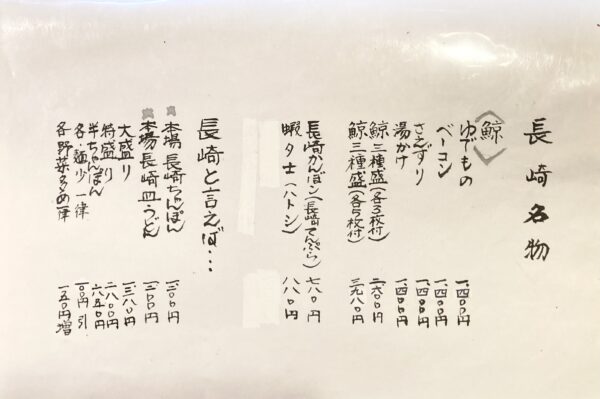 長崎名物
鯨
ゆでもの 一、四〇〇円
ベーコン 一、四〇〇円
さえずり 一、四〇〇円
湯かけ 一、四〇〇円
鯨三種盛(各3枚付) 二、六〇〇円
鯨三種盛(各5枚付) 三、九八〇円
長崎かんぼこ(長崎てんぷら) 七八〇円
蝦夕士(ハトシ) 八八〇円
長崎と言えば…
本場長崎ちゃんぽん 一、二〇〇円
本場長崎皿うどん 一、二〇〇円
大盛り 一、三八〇円
特盛り 二、八〇〇円
半ちゃんぽん 六五〇円
各・麺少 一律 一〇〇円引
各野菜多め一律 一五〇円増